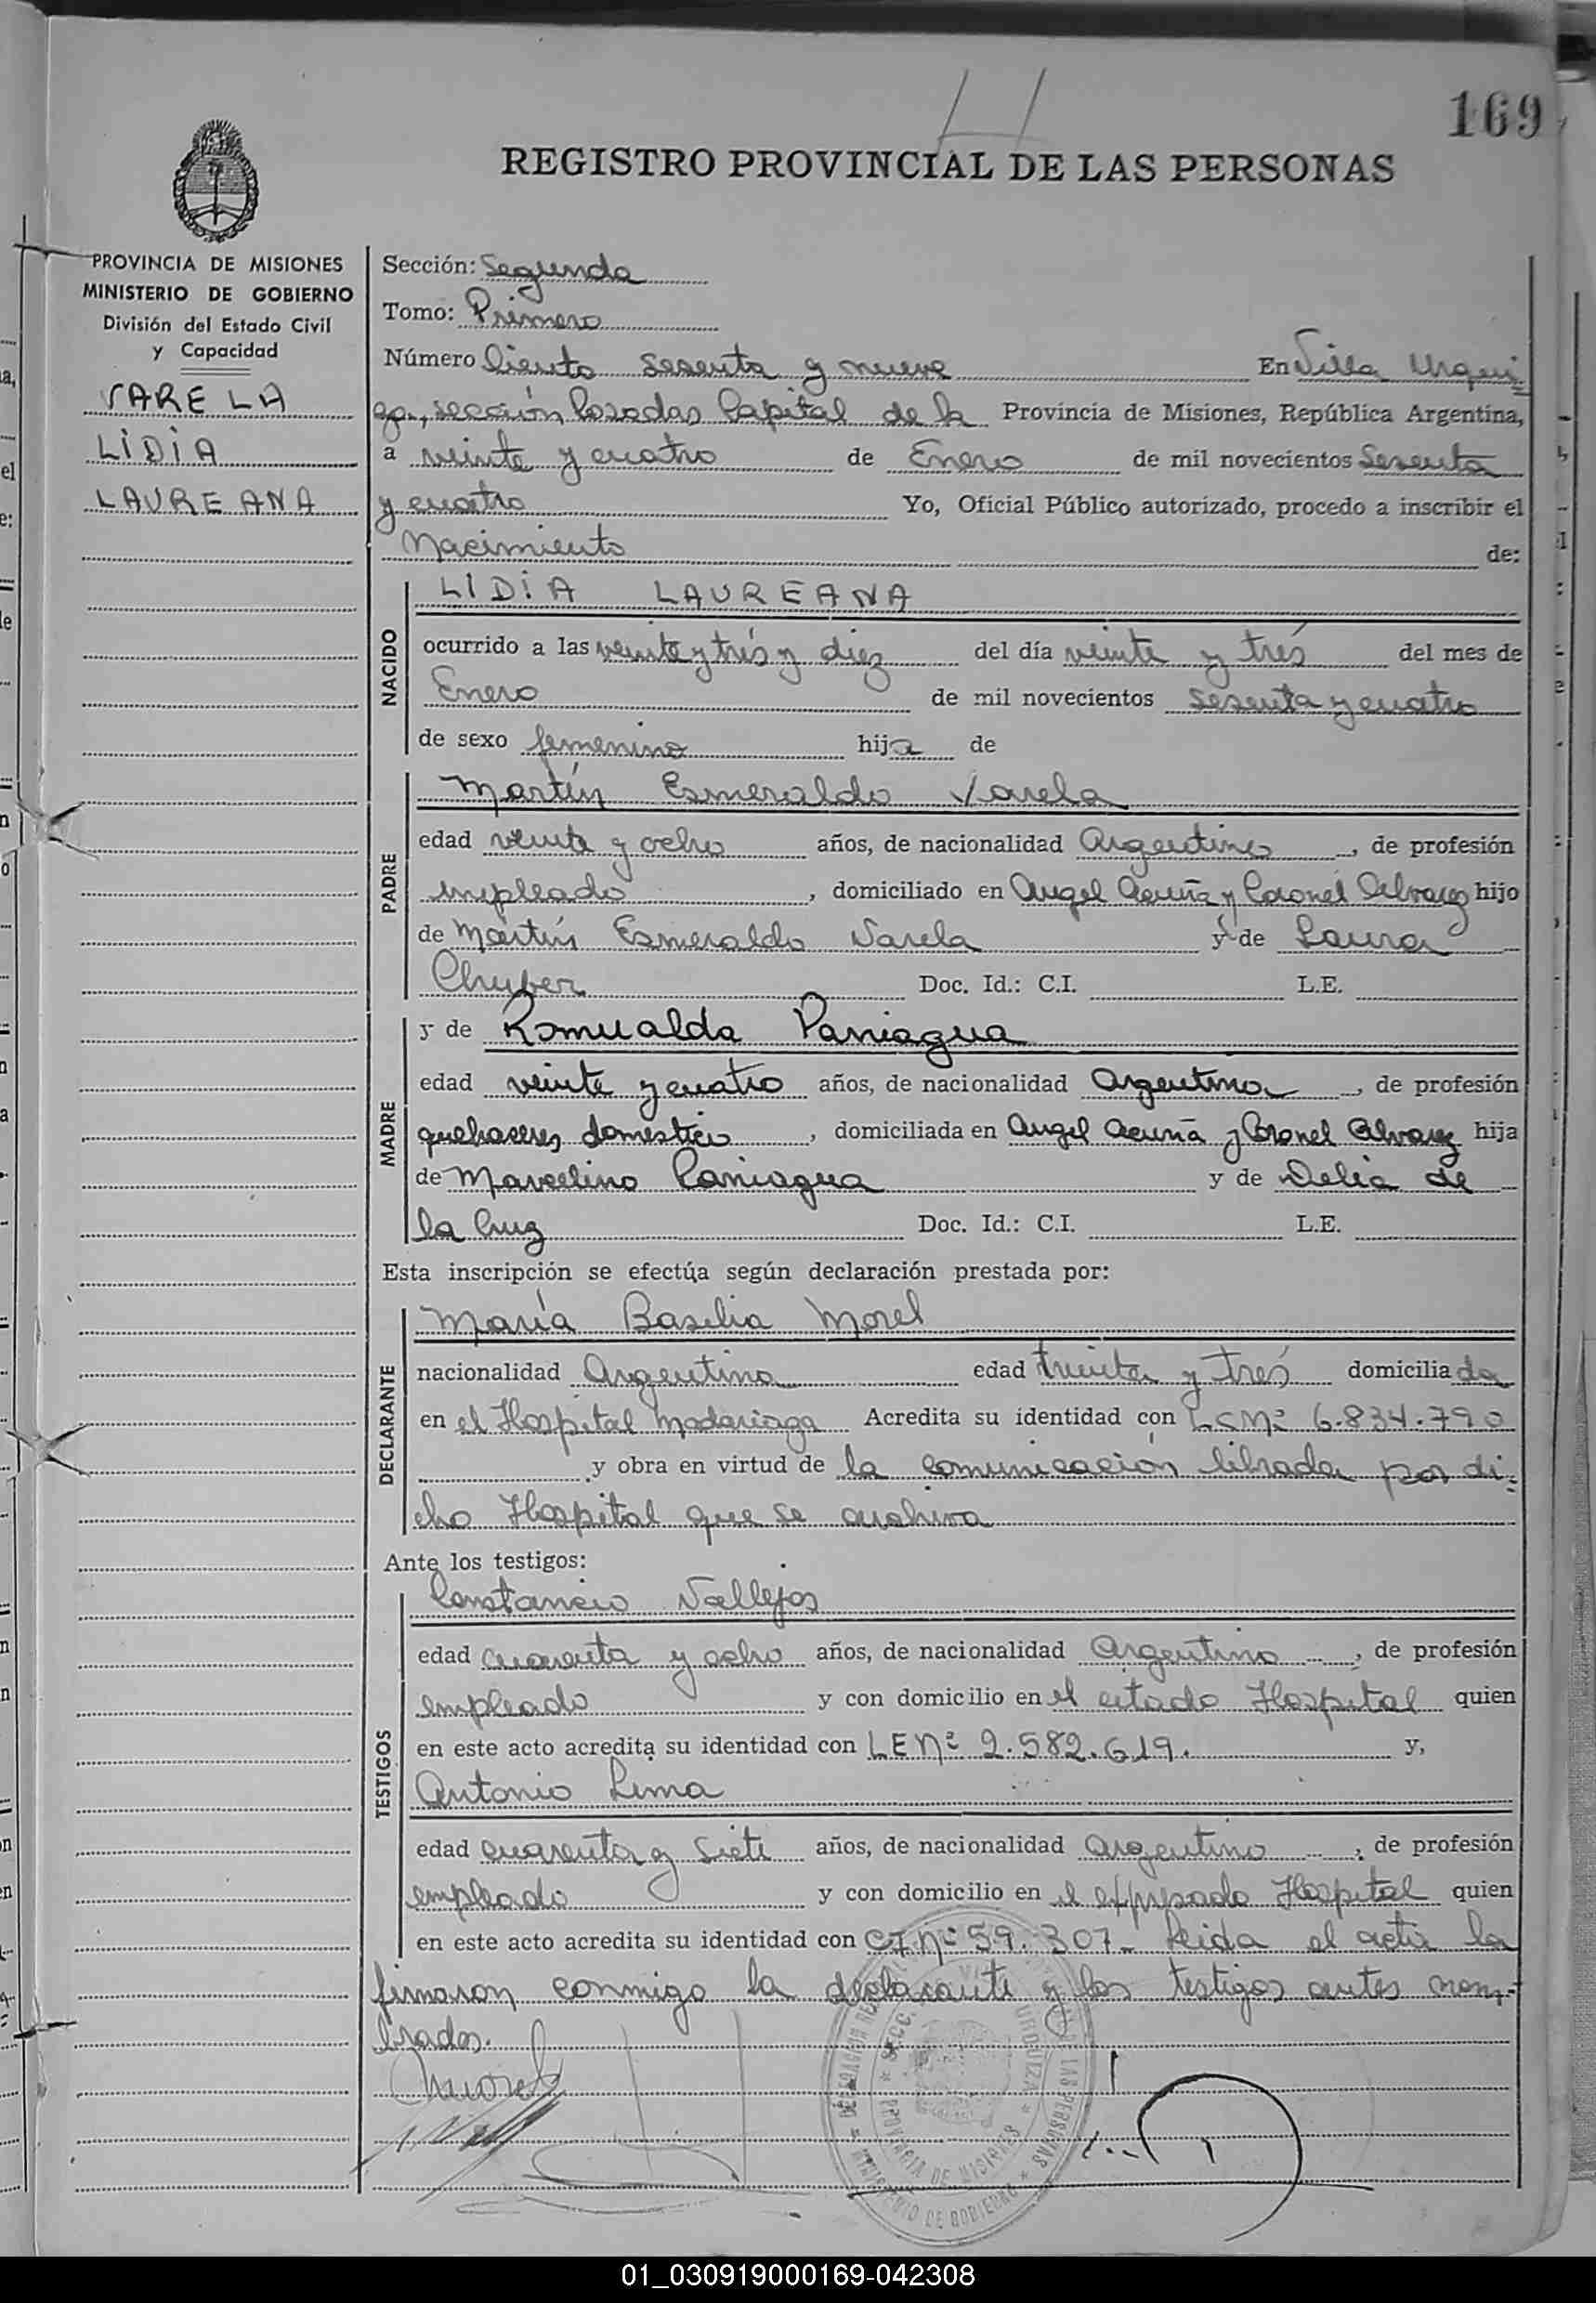 169
REGISTRO PROVINCIAL DE LAS PERSONAS
PROVINCIA DE MISIONES
MINISTERIO DE GOBIERNO
División del Estado Civil
y Capacidad
VARELA
LIDIA
LAUREANA
Sección: Segunda
Tomo: Primero
Número Ciento sesenta y nueve En Villa Urqui
za, sección Posadas Capital de la Provincia de Misiones, República Argentina,
a veinte y cuatro de Enero de mil novecientos Sesenta
y cuatro Yo, Oficial Público autorizado, procedo a inscribir el
Nacimiento de:
NACIDO
LIDIA LAUREANA
ocurrido a las veinte y trés y diez del día veinte y trés del mes de
Enero de mil novecientos sesenta y cuatro
de sexo femenino hija de
PADRE
Martín Esmeraldo Varela
edad veinte y ocho años, de nacionalidad Argentino, de profesión
empleado, domiciliado en Angel Acuña y Coronel Alvarez hijo
de Martín Esmeraldo Varela y de Laura
Chuber Doc. Id.: C.I. L.E.
MADRE
y de Romualda Paniagua
edad veinte y cuatro años, de nacionalidad Argentina, de profesión
quehaceres domestico, domiciliada en Angel Acuña y Coronel Alvarez hija
de Marcelino Paniagua y de Delia de
la Cruz Doc. Id.: C.I. L.E.
Esta inscripción se efectúa según declaración prestada por:
DECLARANTE
María Basilia Morel
nacionalidad Argentina edad treinta y trés domiciliada
en el Hospital Madariaga Acredita su identidad con LCNº 6.834.790
y obra en virtud de la comunicación librada por di-
cho Hospital que se archiva
Ante los testigos:
TESTIGOS
Constancio Vallejos
edad cuarenta y ocho años, de nacionalidad Argentino, de profesión
empleado y con domicilio en el citado Hospital quien
en este acto acredita su identidad con LENº 2.582.619. y,
Antonio Lima
edad cuarenta y siete años, de nacionalidad Argentino, de profesión
empleado y con domicilio en el expresado Hospital quien
en este acto acredita su identidad con CINº 59.307- Leida el acta la
firmaron conmigo la declarante y los testigos antes nom-
brados.
URQUIZA
PROVINCIA DE MISIONES
MINISTERIO DE GOBIERNO
DE LAS PERSONAS
01_030919000169-042308